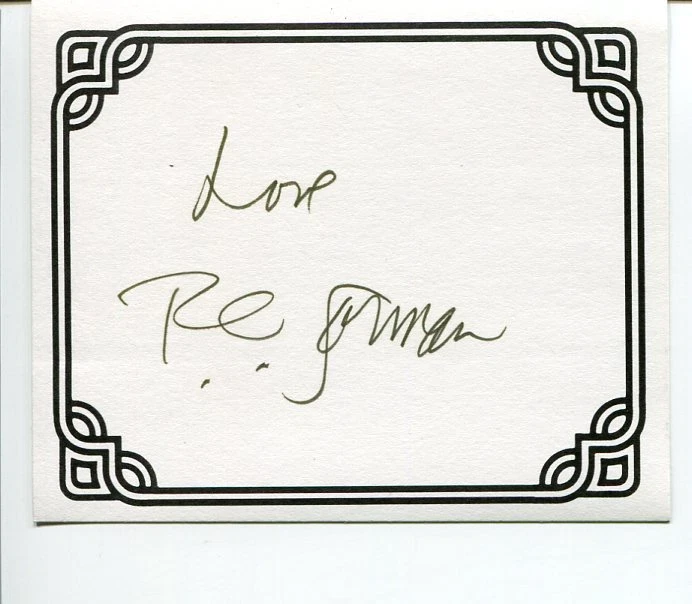 Love
R.C. Gorman